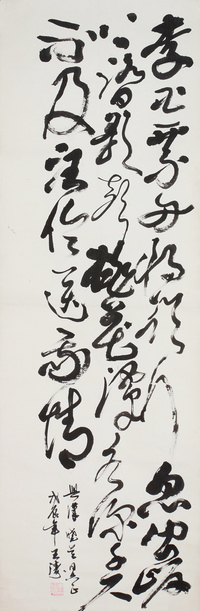 李白乘舟將欲行忽聞岸
上踏歌聲桃花潭水深千尺
不及汪倫送我情
戊辰年王濤